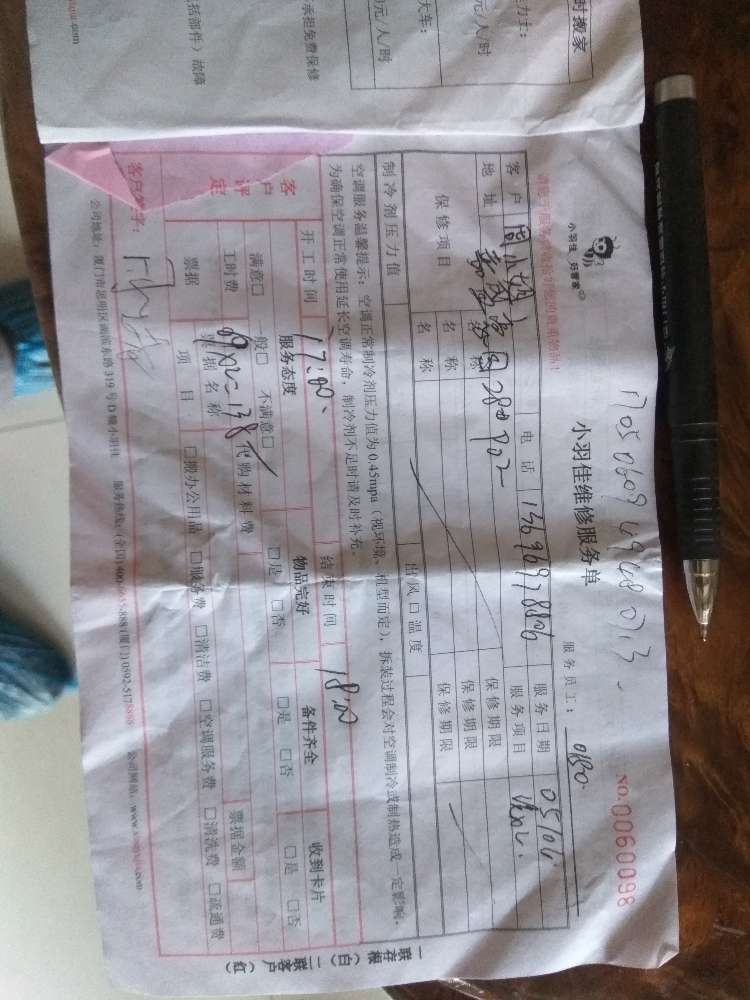 时搬家
元/人/时
大车：
元/人/时
承担免费保修
括部件）故障
小羽佳 好管家
17050609494807.13
小羽佳维修服务单
NO.0060098
服务员工：
客户
周小姐
电话
服务日期
05/06
地址
服务项目
保修项目
名称
保修期限
名称
保修期限
名称
保修期限
制冷剂压力值
出风口温度
空调服务温馨提示：空调正常制冷剂压力值为0.45mpa（视环境、机型而定），拆装过程会对空调制冷或制热造成一定影响，
为确保空调正常使用延长空调寿命，制冷剂不足时请及时补充。
开工时间
17:00
结束时间
18:00
客户评定
服务态度
物品完好
备件齐全
收到卡片
满意□ 一般□ 不满意□
□是 □否
□是 □否
□是 □否
工时费
69x2=138元
代购材料费
票据
票据名称
票据金额
项目
□搬办公用品 □服务费 □清洁费 □空调服务费 □清洗费 □疏通费
客户签字：
公司地址：厦门市思明区湖滨东路319号D幢小羽佳 服务热线：(全国) (厦门)0592-5178888 公司网站：www.
一联存根（白）二联客户（红）